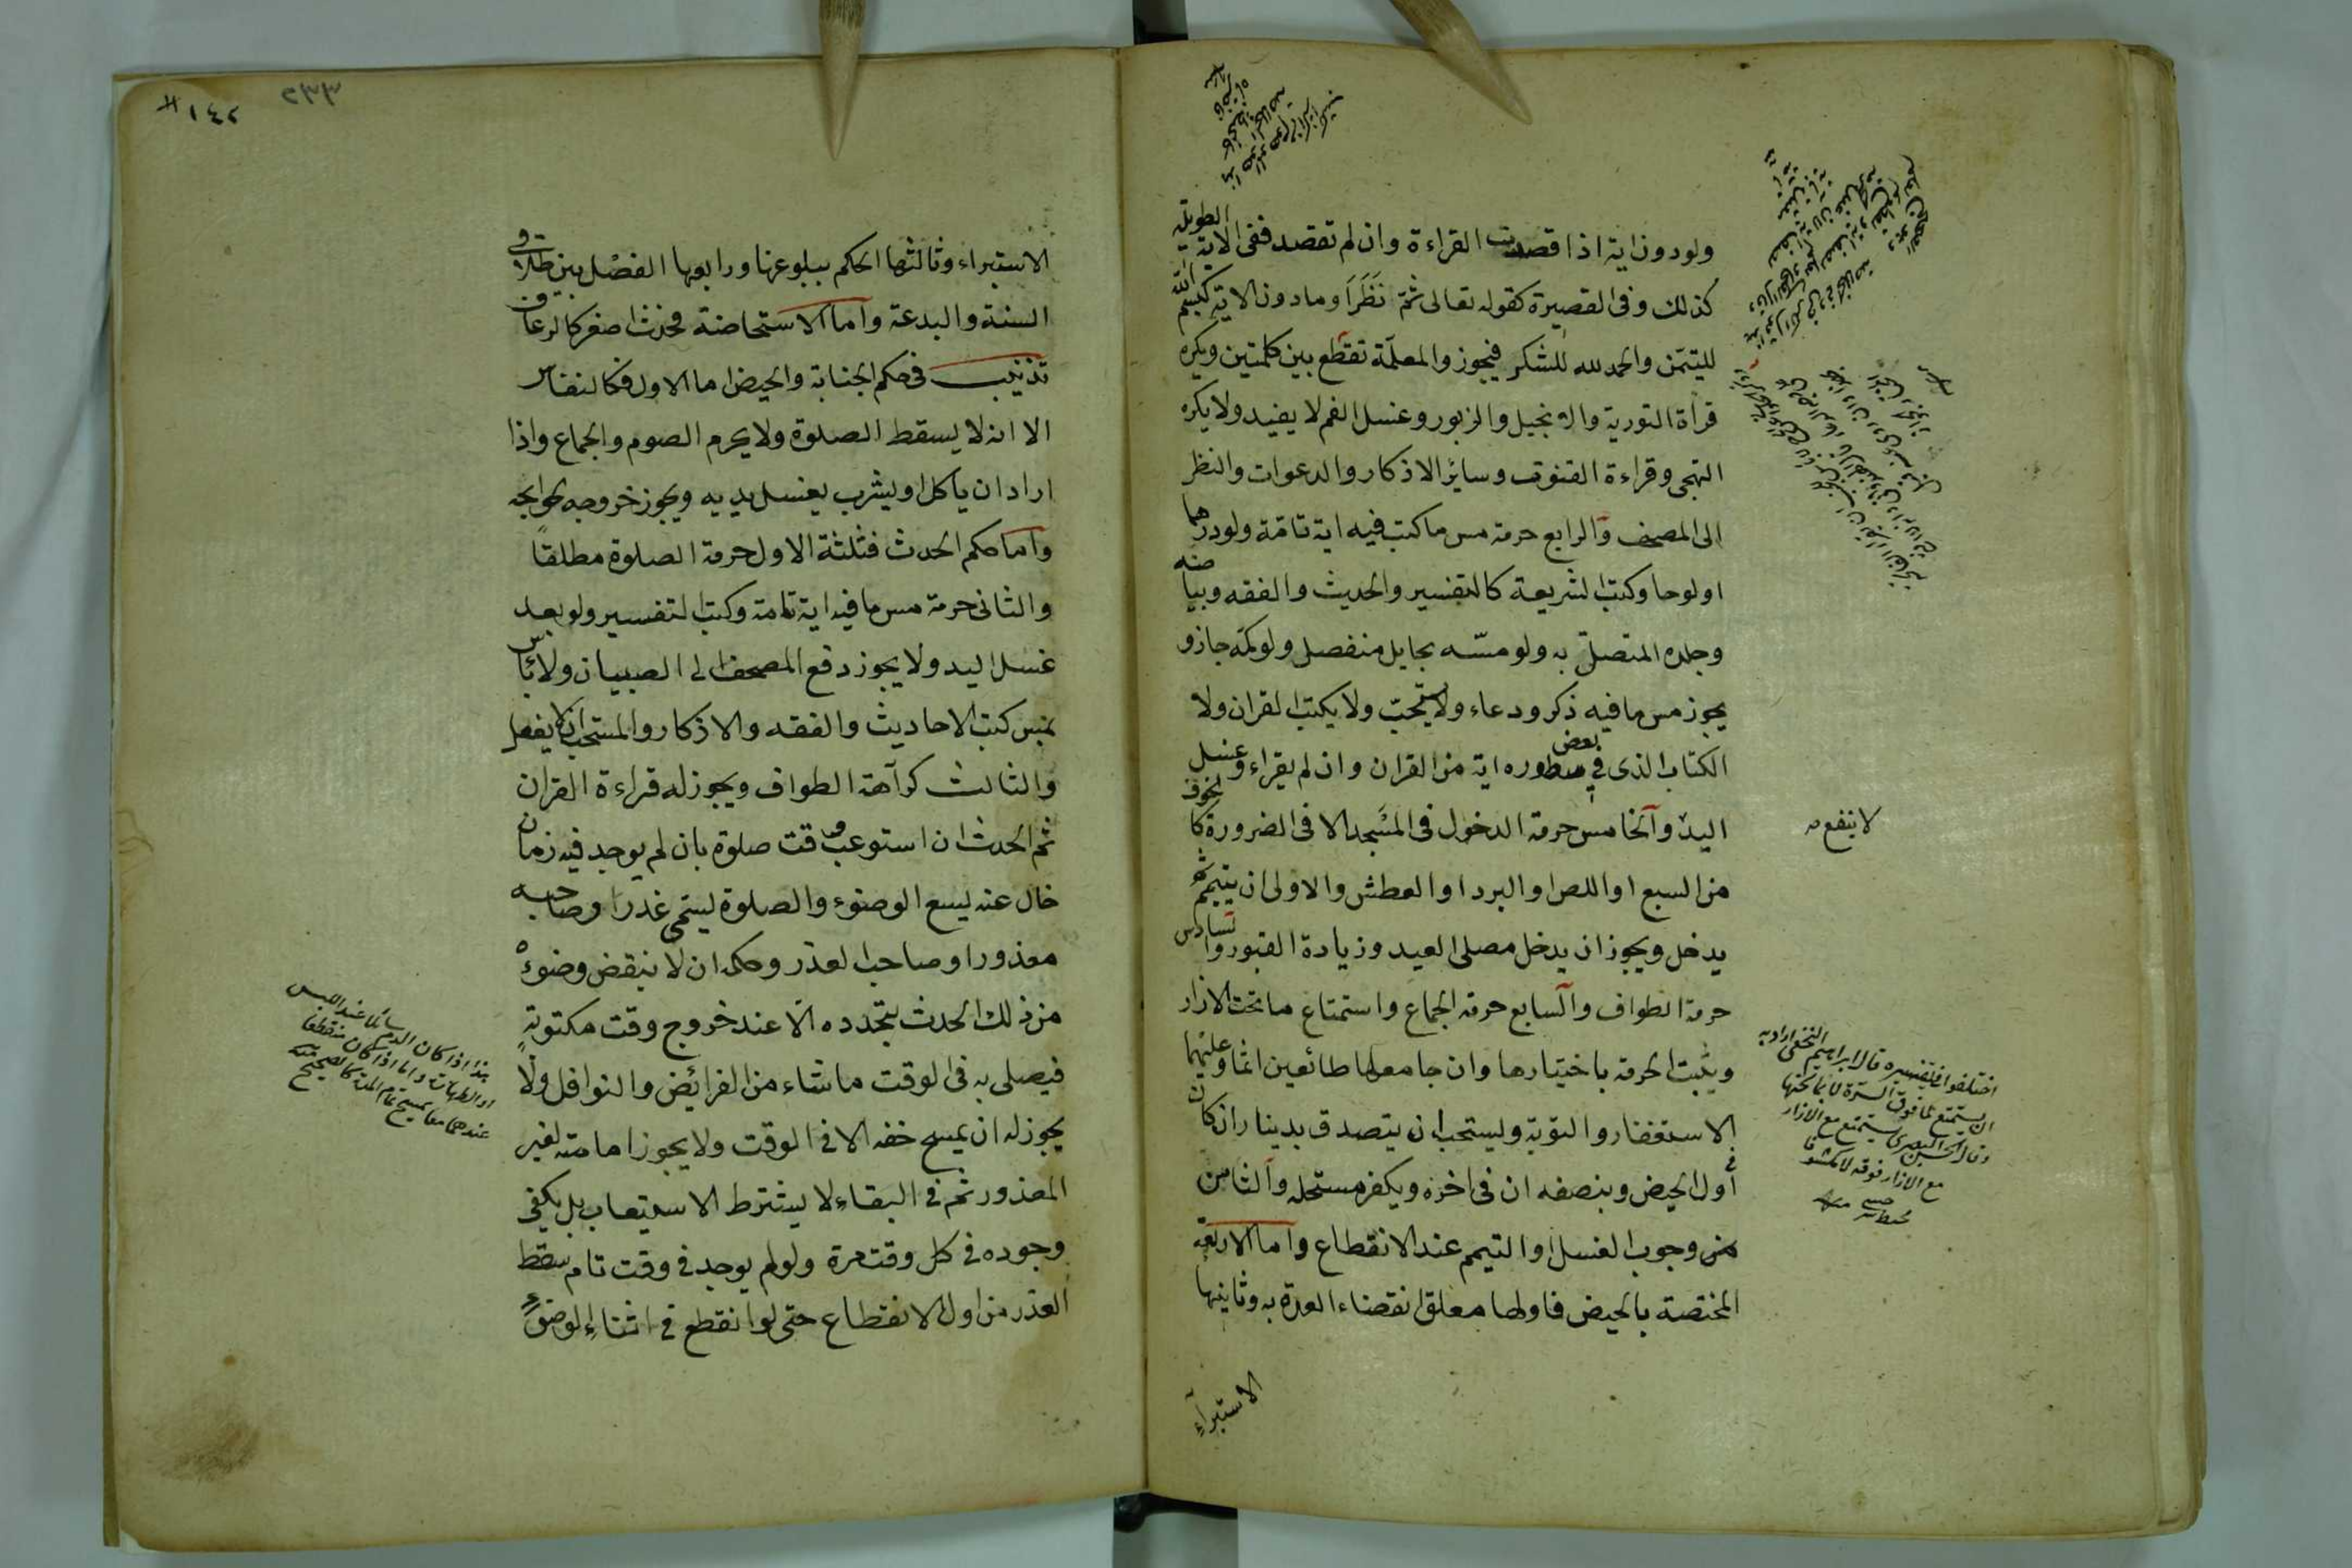 ولو دون اية اذا قصدت القراءة وان لم تقصد ففى الاية الطويلة
كذلك وفى القصيرة كقوله تعالى ثم نَظَرَ وما دون الاية كبسم الله
للتيمّن والحمد لله للشكر فيجوز والمعلّمة تقطع بين كلمتين ويكره
قرأة التورية والانجيل والزبور وغسل الفم لا يفيد ولا يكره
التهجى وقراءة القنوت وسائر الاذكار والدعوات والنظر
الى المصحف والرابع حرمة مس ما كتب فيه اية تامّة ولو درهما
او لوحا وكتب الشريعة كالتفسير والحديث والفقه وبياضه
وجلده المتصل به ولو مسّه بحايل منفصل ولو كمّه جاز و
يجوز مس ما فيه ذكر ودعاء ولا يستحبّ ولا يكتب القران ولا
الكتاب الذى فى بعض سطوره اية من القران وان لم يقراء وغسل
اليد والخامس حرمة الدخول فى المسجد الا فى الضرورة كالخوف
من السبع او اللص او البرد او العطش والاولى ان يتيمم ثم
يدخل ويجوز ان يدخل مصلى العيد وزيارة القبور والسادس
حرمة الطواف والسابع حرمة الجماع واستمتاع ما تحت الازار
ويثبت الحرمة باخبارها وان جامعها طائعين اثما وعليهما
الاستغفار والتوبة ويستحب ان يتصدق بدينار ان كان
فى اول الحيض وبنصفه ان فى اخره ويكفر مستحله والثامن
من وجوب الغسل او التيمم عند الانقطاع واما الاربعة
المختصة بالحيض فاولها معلق انقضاء العدة به وثانيها
الاستبرآء
لا ينفع
اختلفوا فى تفسيره قال ابراهيم النخعى اراد به
ان يستمتع بما فوق السرة لا بما تحتها
وقال الحسن البصرى يستمتع مع الازار
مع الازار فوقه لا مكشوفا
محيط سرخسى منه
٢٣٣
١٤٢
الاستبراء وثالثها الحكم ببلوغها ورابعها الفصل بين طلاقى
السنة والبدعة واما الاستحاضة فحدث اصغر كالرعاف
تذنيب فى حكم الجنابة والحيض اما الاول فكالنفاس
الا انه لا يسقط الصلوة ولا يحرم الصوم والجماع واذا
اراد ان ياكل او يشرب يغسل يديه ويجوز خروجه لحوائجه
واما حكم الحدث فثلثة الاول حرمة الصلوة مطلقًا
والثانى حرمة مس ما فيه اية تامة وكتب التفسير ولو بعد
غسل اليد ولا يجوز دفع المصحف الى الصبيان ولا بأس
بمس كتب الاحاديث والفقه والاذكار والمستحب ان لا يفعل
والثالث كراهة الطواف ويجوز له قراءة القران
ثم الحدث ان استوعب وقت صلوة بان لم يوجد فيه زمان
خال عنه يسع الوضوء والصلوة ليسمى عذرا وصاحبه
معذورا وصاحب العذر وحكمه ان لا ينقض وضوءه
من ذلك الحدث بتجدده الا عند خروج وقت مكتوبة
فيصلى به فى الوقت ما شاء من الفرائض والنوافل ولا
يجوز له ان يمسح خفه الا فى الوقت ولا يجوز امامته لغير
المعذور ثم فى البقاء لا يشترط الاستيعاب بل يكفى
وجوده فى كل وقت مرة ولو لم يوجد فى وقت تام سقط
العذر من اول الانقطاع حتى لو انقطع فى اثناء الوضوء
هذا اذا كان الدم سائلا عند اللبس
او الطهارة واما اذا كان منقطعا
عندهما معا يمسح تمام المدة كالصحيح منه